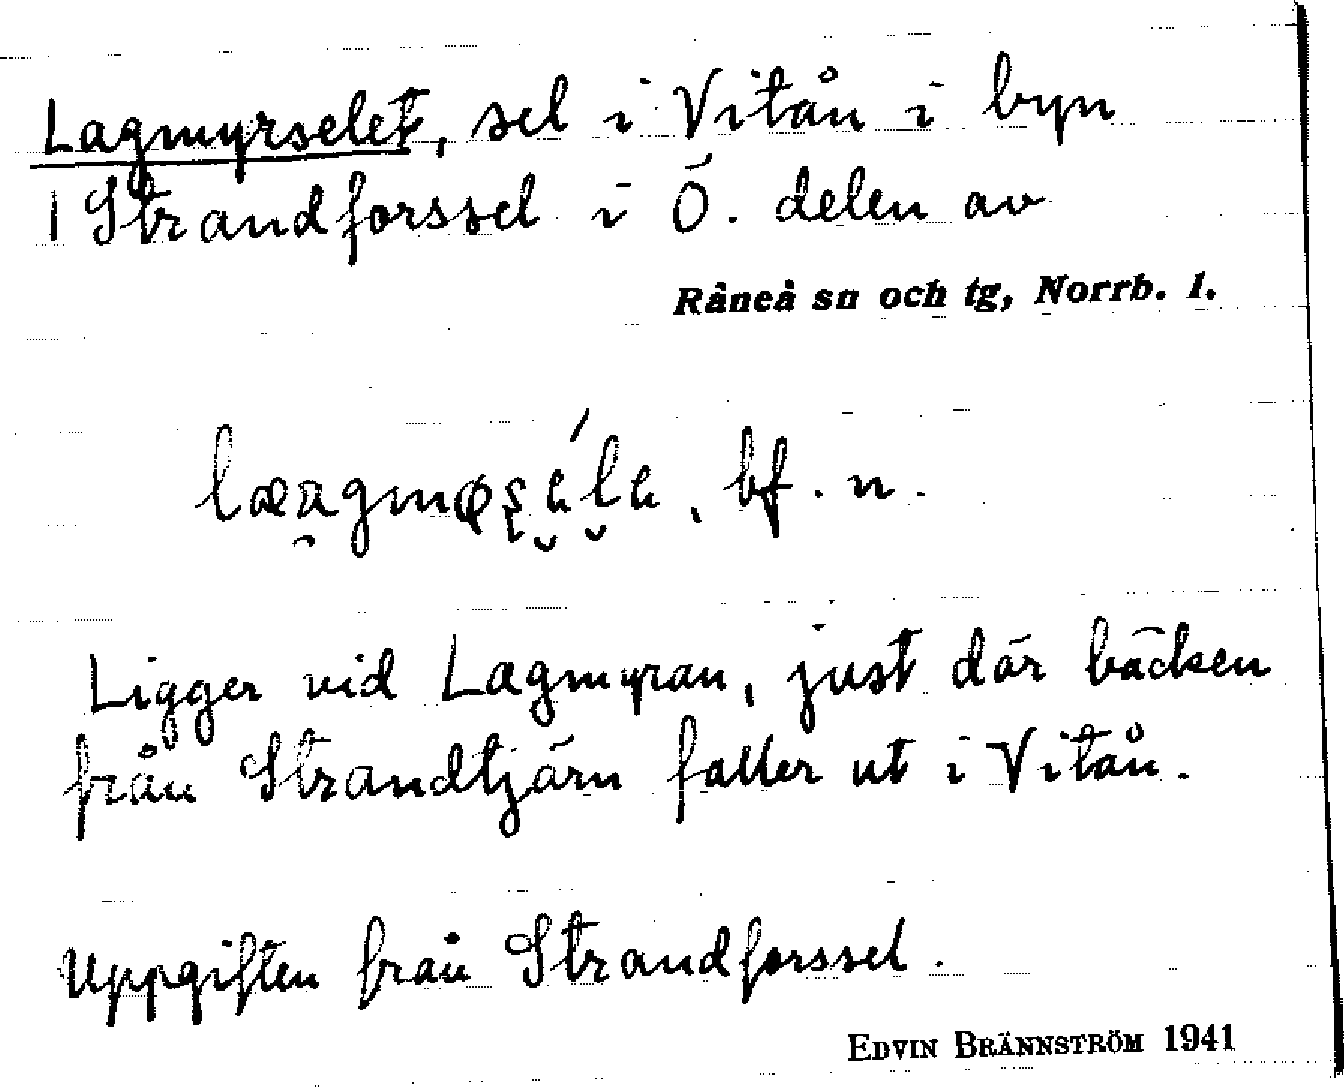 Lagmyrselet, sel i Vitån i byn
| Strandforssel i Ö. delen av
Råneå sn och tg, Norrb. l.
bf. n.
Ligger vid Lagmyran, just där bäcken
från Strandtjärn faller ut i Vitån.
Uppgiften från Strandforssel.
EDVIN BRÄNNSTRÖM 1941